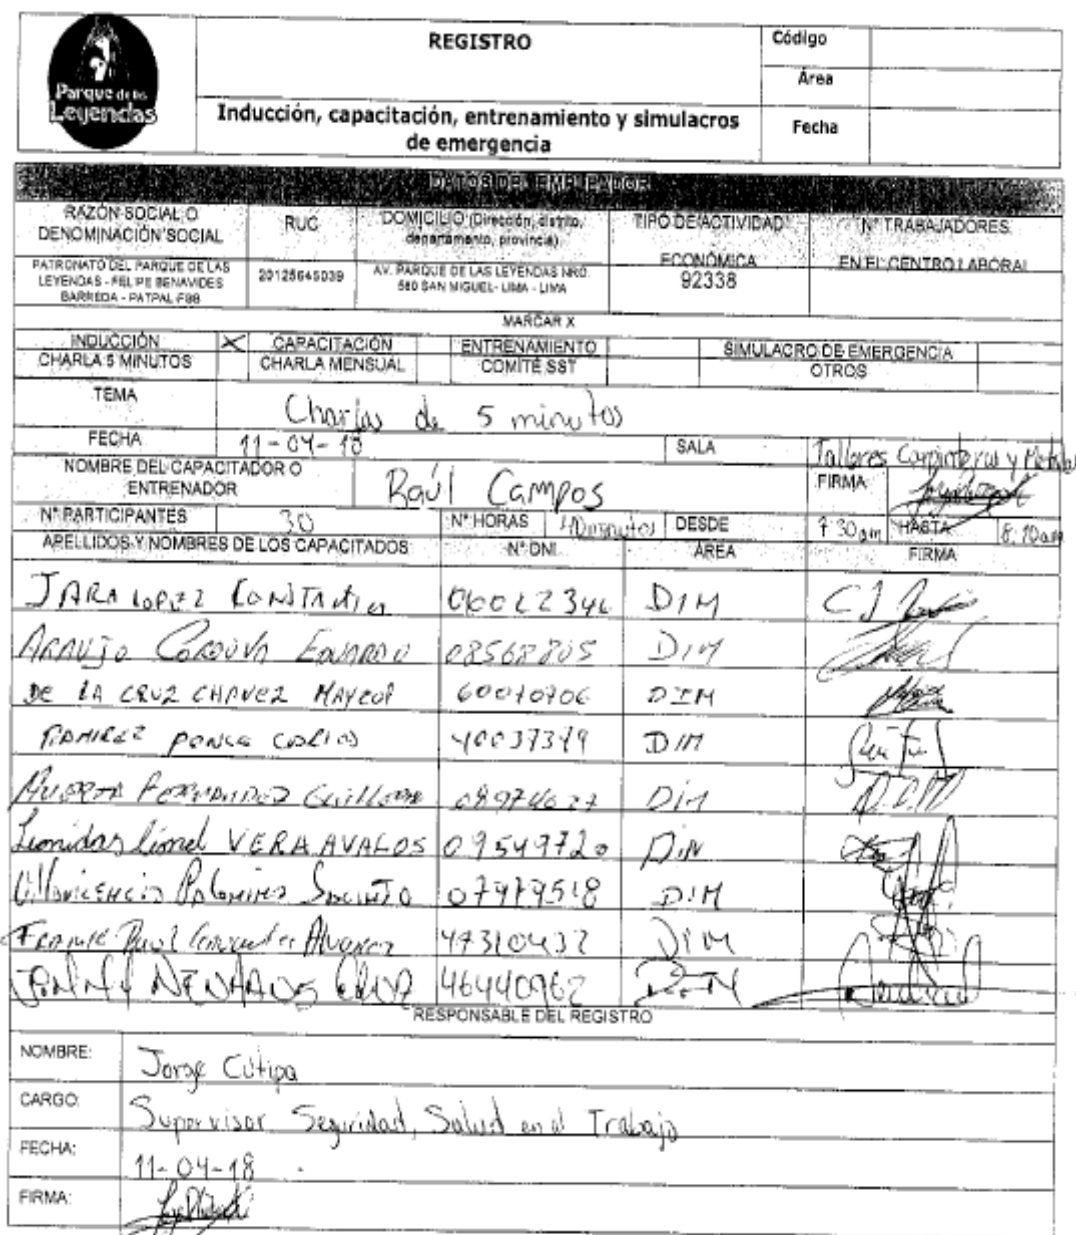 Parque de las
Leyendas
REGISTRO
Inducción, capacitación, entrenamiento y simulacros
de emergencia
Código
Área
Fecha
DATOS DEL EMPLEADOR
RAZÓN SOCIAL O
DENOMINACIÓN SOCIAL
RUC
DOMICILIO (Dirección, distrito,
departamento, provincia)
TIPO DE ACTIVIDAD
ECONÓMICA
N° TRABAJADORES
EN EL CENTRO LABORAL
PATRONATO DEL PARQUE DE LAS
LEYENDAS - FELIPE BENAVIDES
BARREDA - PATPAL-FBB
20125645039
AV. PARQUE DE LAS LEYENDAS NRO.
580 SAN MIGUEL- LIMA - LIMA
92338
MARCAR X
INDUCCIÓN X CAPACITACIÓN ENTRENAMIENTO SIMULACRO DE EMERGENCIA
CHARLA 5 MINUTOS CHARLA MENSUAL COMITÉ SST OTROS
TEMA Charlas de 5 minutos
FECHA 11-04-18 SALA Talleres Carpinteria y
NOMBRE DEL CAPACITADOR O
ENTRENADOR
Raúl Campos
FIRMA
N° PARTICIPANTES 30 N° HORAS 40 minutos DESDE 7:30am HASTA 8:10am
APELLIDOS Y NOMBRES DE LOS CAPACITADOS N° DNI ÁREA FIRMA
JARA LOPEZ DIM
ARAUJO CORDOVA EDUARDO 08568805 DIM
DE LA CRUZ CHAVEZ 60070706 DIM
RAMIREZ PONCE CARLOS 40037379 DIM
HUERTA FERNANDEZ Guillermo DIM
Leonidas Lionel VERA AVALOS 09549720 DIM
Villavicencio Palomino 07979518 DIM
Alvarez 47310437 DIM
46440962 DIM
RESPONSABLE DEL REGISTRO
NOMBRE: Jorge Cutipa
CARGO: Supervisor Seguridad, Salud en el Trabajo
FECHA: 11-04-18
FIRMA: